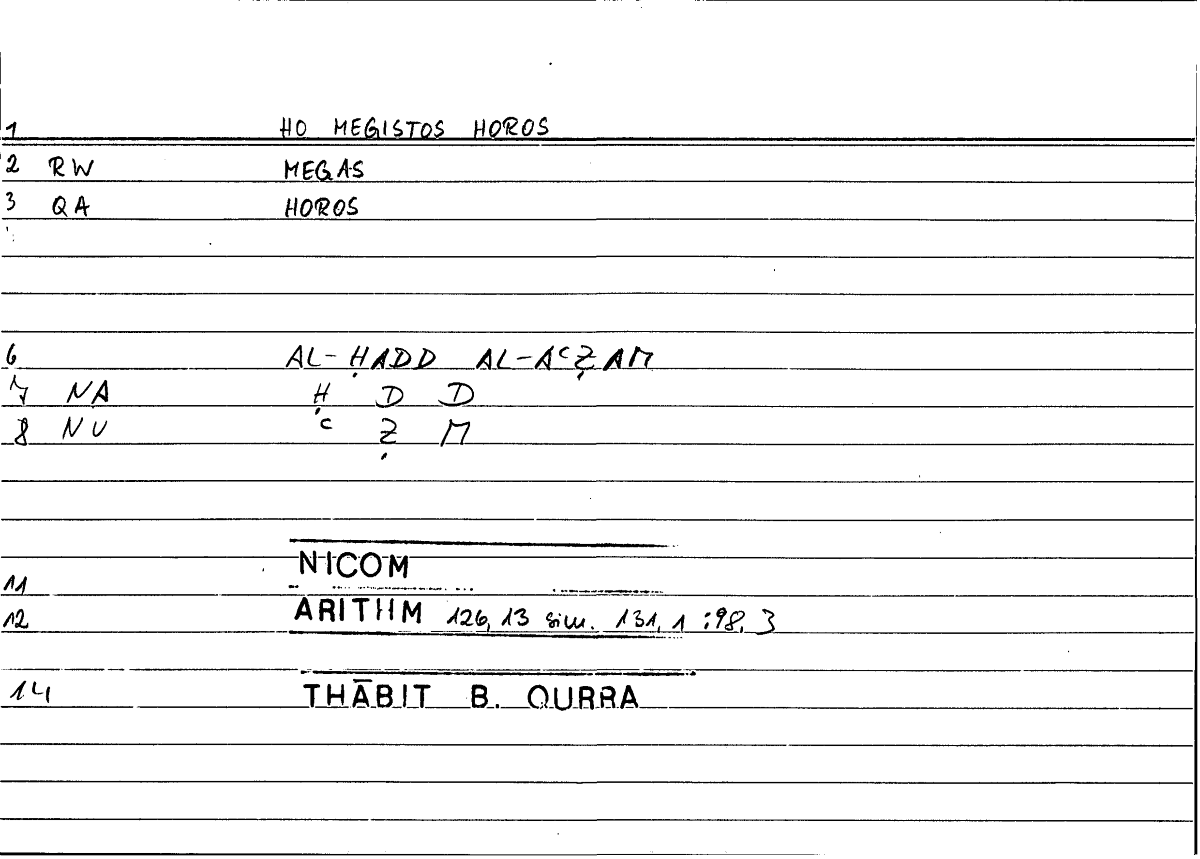 1 HO MEGISTOS HOROS
2 RW MEGAS
3 QA HOROS
6 AL-ḤADD AL-AᶜẒAM
7 NA Ḥ D D
8 NU ᶜ Ẓ M
11 NICOM
12 ARITHM 126, 13 sim. 131, 1 : 98, 3
14 THĀBIT B. QURRA